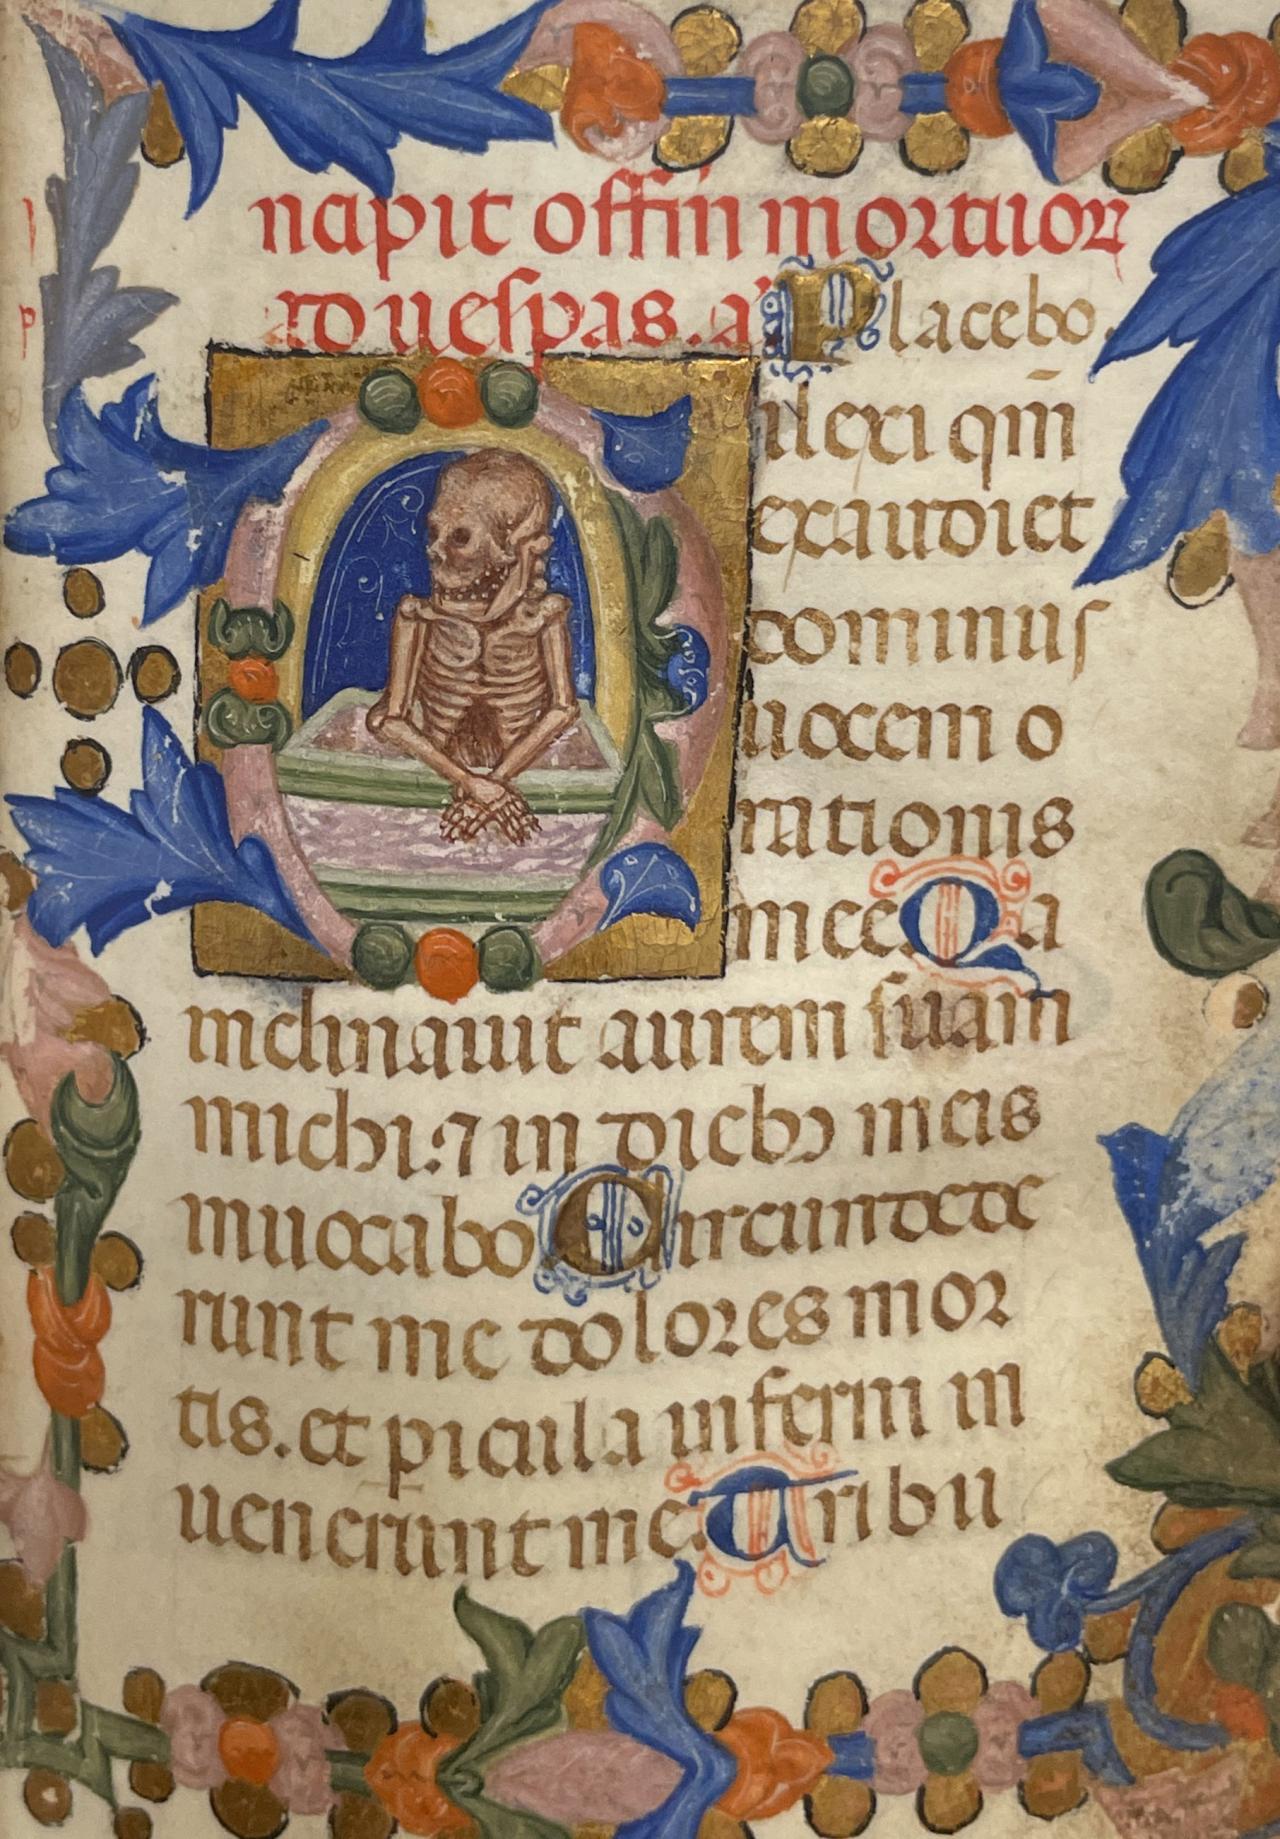 ncipit offin mortuoꝝ
ad uespas. a' Placebo.
ilexi qm̄
exaudiet
dominus
uocem o
rationis
mee. Qa
inclinauit aurem suam
michi: ⁊ in diebꝫ meis
inuocabo Circundede
runt me dolores mor
tis. et picula inferni in
uenerunt me. Tribu